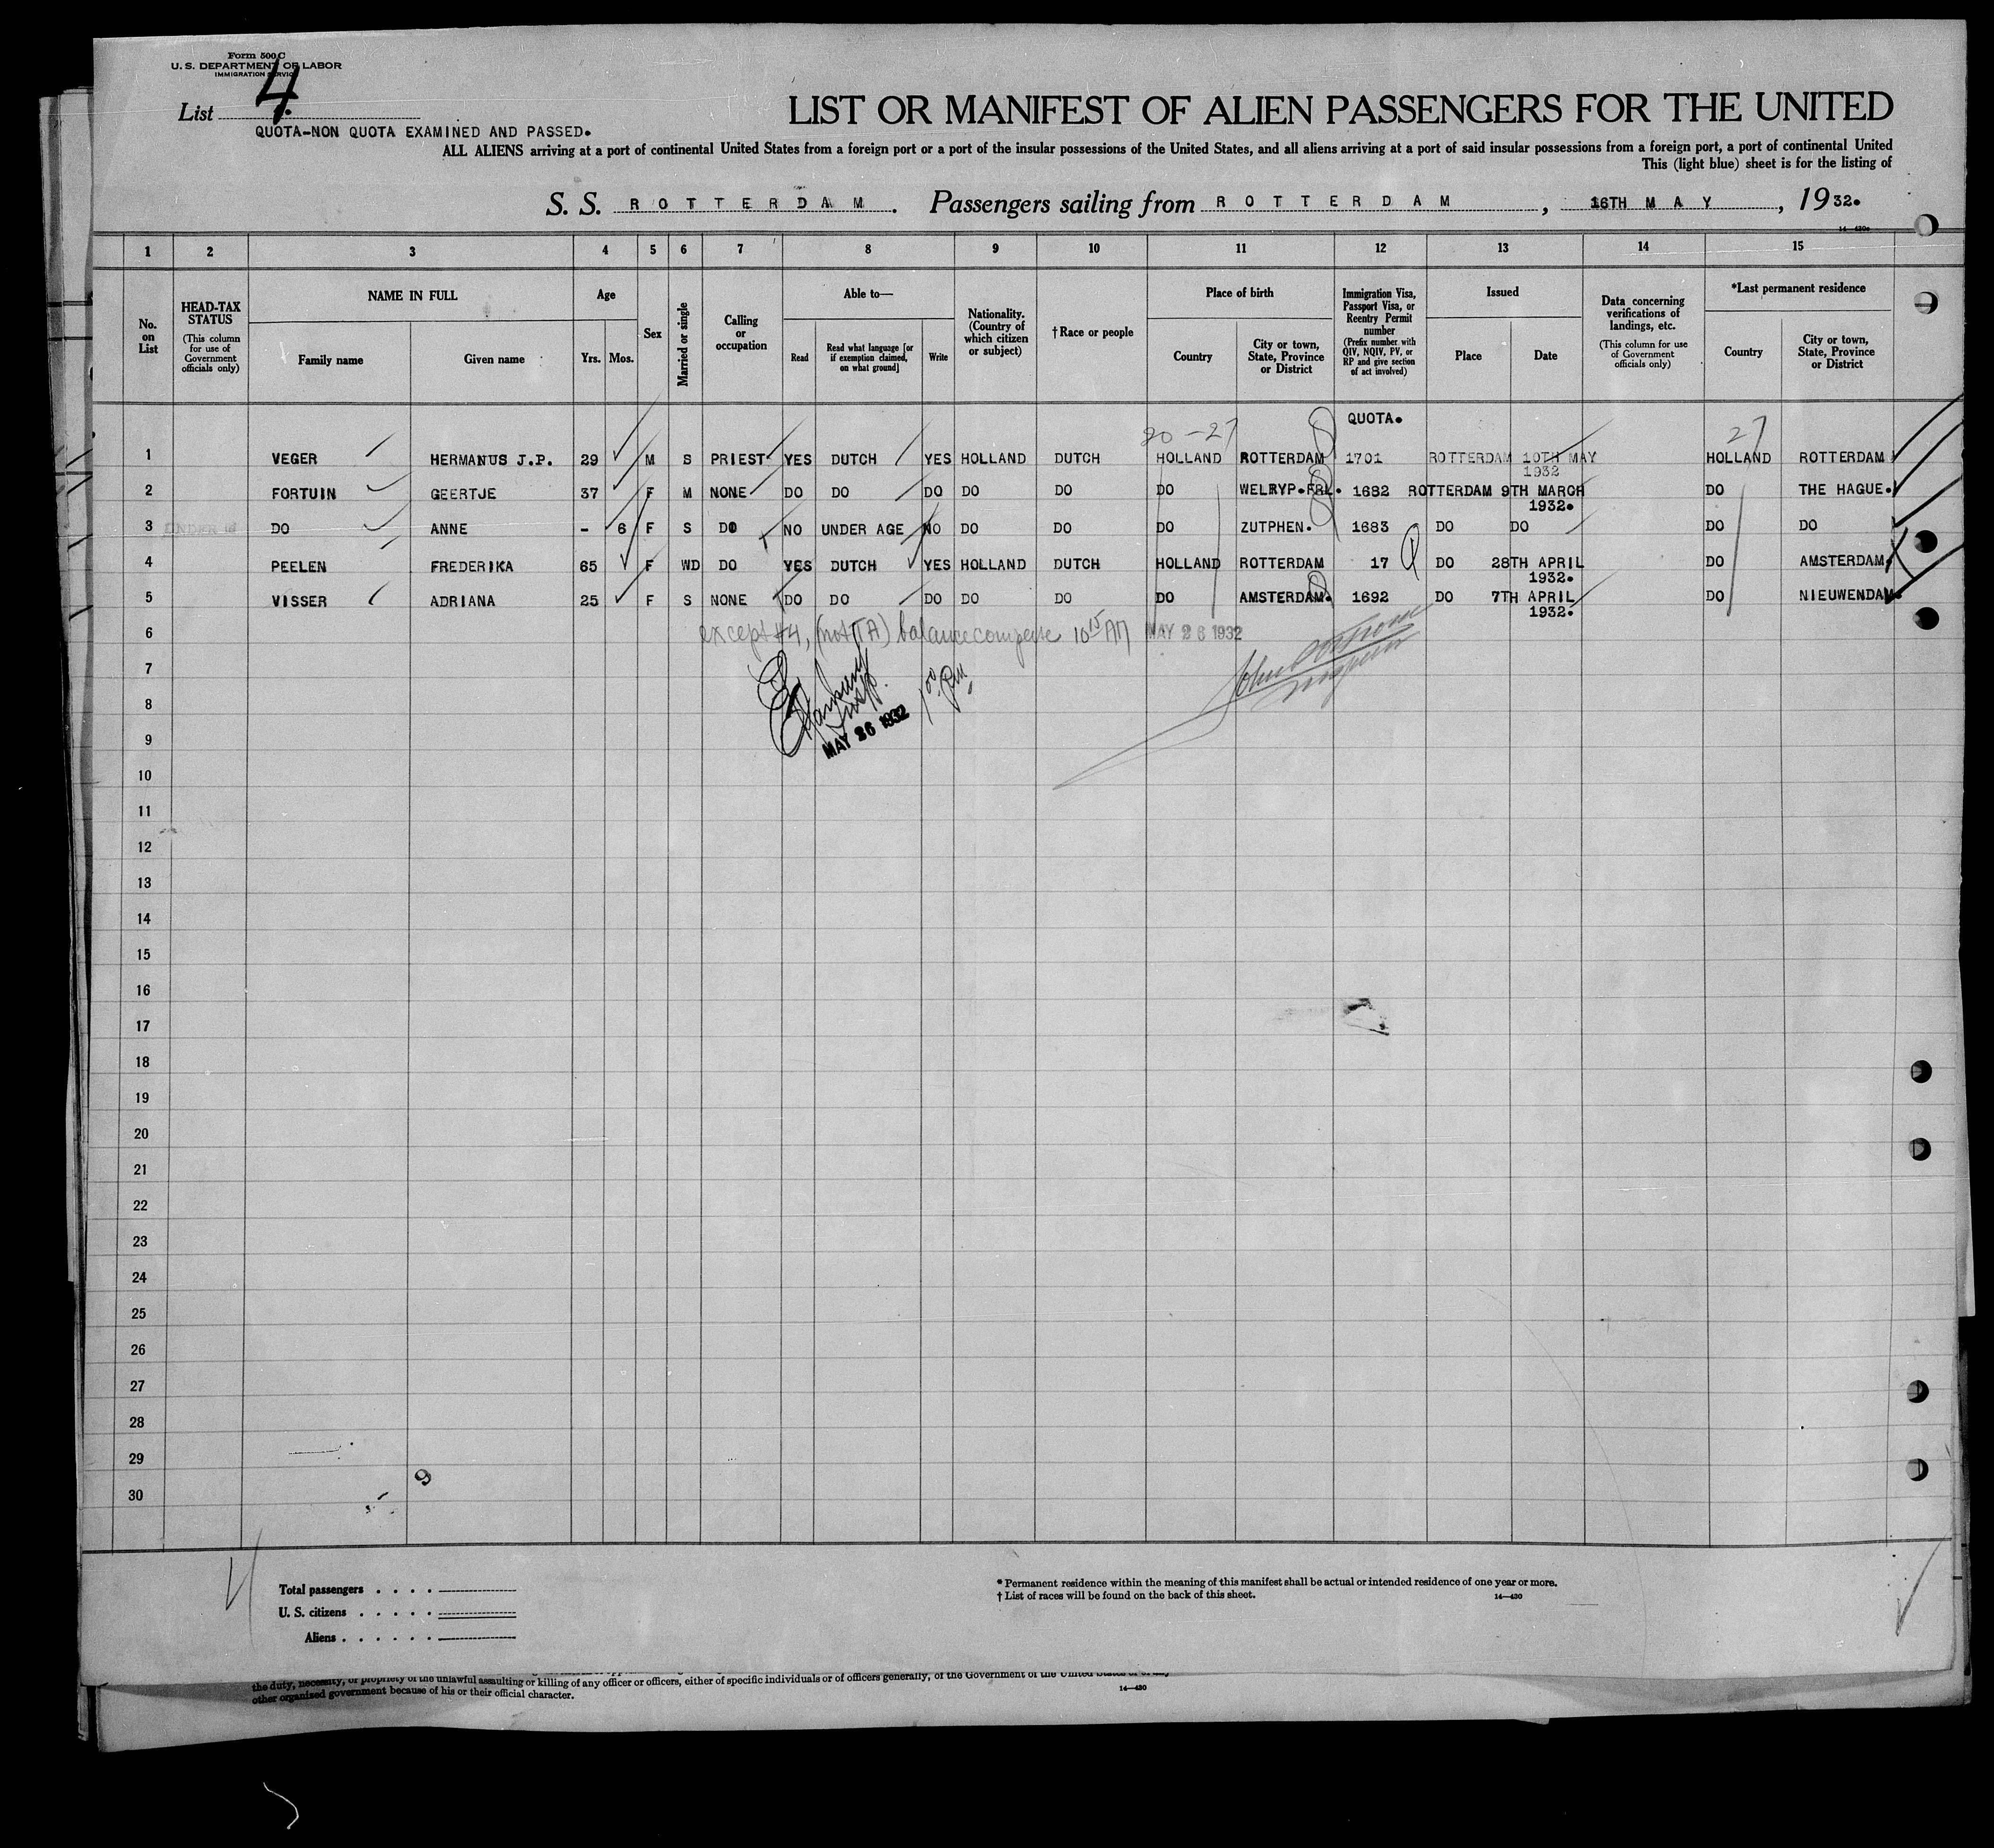 Form 500 C
U. S. DEPARTMENT OF LABOR
IMMIGRATION SERVICE
List 4
QUOTA-NON QUOTA EXAMINED AND PASSED.
LIST OR MANIFEST OF ALIEN PASSENGERS FOR THE UNITED
ALL ALIENS arriving at a port of continental United States from a foreign port or a port of the insular possessions of the United States, and all aliens arriving at a port of said insular possessions from a foreign port, a port of continental United
This (light blue) sheet is for the listing of
S. S. ROTTERDAM. Passengers sailing from ROTTERDAM, 16TH MAY, 1932.
14—430a
1 2 3 4 5 6 7 8 9 10 11 12 13 14 15
No. on List
HEAD-TAX STATUS (This column for use of Government officials only)
NAME IN FULL
Family name
Given name
Age
Yrs.
Mos.
Sex
Married or single
Calling or occupation
Able to—
Read
Read what language [or if exemption claimed, on what ground]
Write
Nationality. (Country of which citizen or subject)
† Race or people
Place of birth
Country
City or town, State, Province or District
Immigration Visa, Passport Visa, or Reentry Permit number (Prefix number with QIV, NQIV, PV, or RP and give section of act involved)
Issued
Place
Date
Data concerning verifications of landings, etc. (This column for use of Government officials only)
*Last permanent residence
Country
City or town, State, Province or District
QUOTA.
20-27 27
1 VEGER HERMANUS J.P. 29 M S PRIEST YES DUTCH YES HOLLAND DUTCH HOLLAND ROTTERDAM 1701 ROTTERDAM 10TH MAY HOLLAND ROTTERDAM
1932
2 FORTUIN GEERTJE 37 F M NONE DO DO DO DO DO DO WELRYP.FRL. 1682 ROTTERDAM 9TH MARCH DO THE HAGUE.
1932.
3 UNDER 16 DO ANNE - 6 F S DO NO UNDER AGE NO DO DO DO ZUTPHEN. 1683 DO DO DO DO
4 PEELEN FREDERIKA 65 F WD DO YES DUTCH YES HOLLAND DUTCH HOLLAND ROTTERDAM 17 DO 28TH APRIL DO AMSTERDAM.
1932.
5 VISSER ADRIANA 25 F S NONE DO DO DO DO DO DO AMSTERDAM. 1692 DO 7TH APRIL DO NIEUWENDAM.
1932.
6 except #4, (not TA) balance complete 10 15 AM MAY 26 1932
7
8 Insp. 1 00 P.M. Inspector
9 MAY 26 1932
10
11
12
13
14
15
16
17
18
19
20
21
22
23
24
25
26
27
28
29
30
9
Total passengers . . . .
U. S. citizens . . . . .
Aliens . . . . . .
* Permanent residence within the meaning of this manifest shall be actual or intended residence of one year or more.
† List of races will be found on the back of this sheet.
14—430
the duty, necessity, or propriety of the unlawful assaulting or killing of any officer or officers, either of specific individuals or of officers generally, of the Government of the United States or of any
other organized government because of his or their official character.
14—430